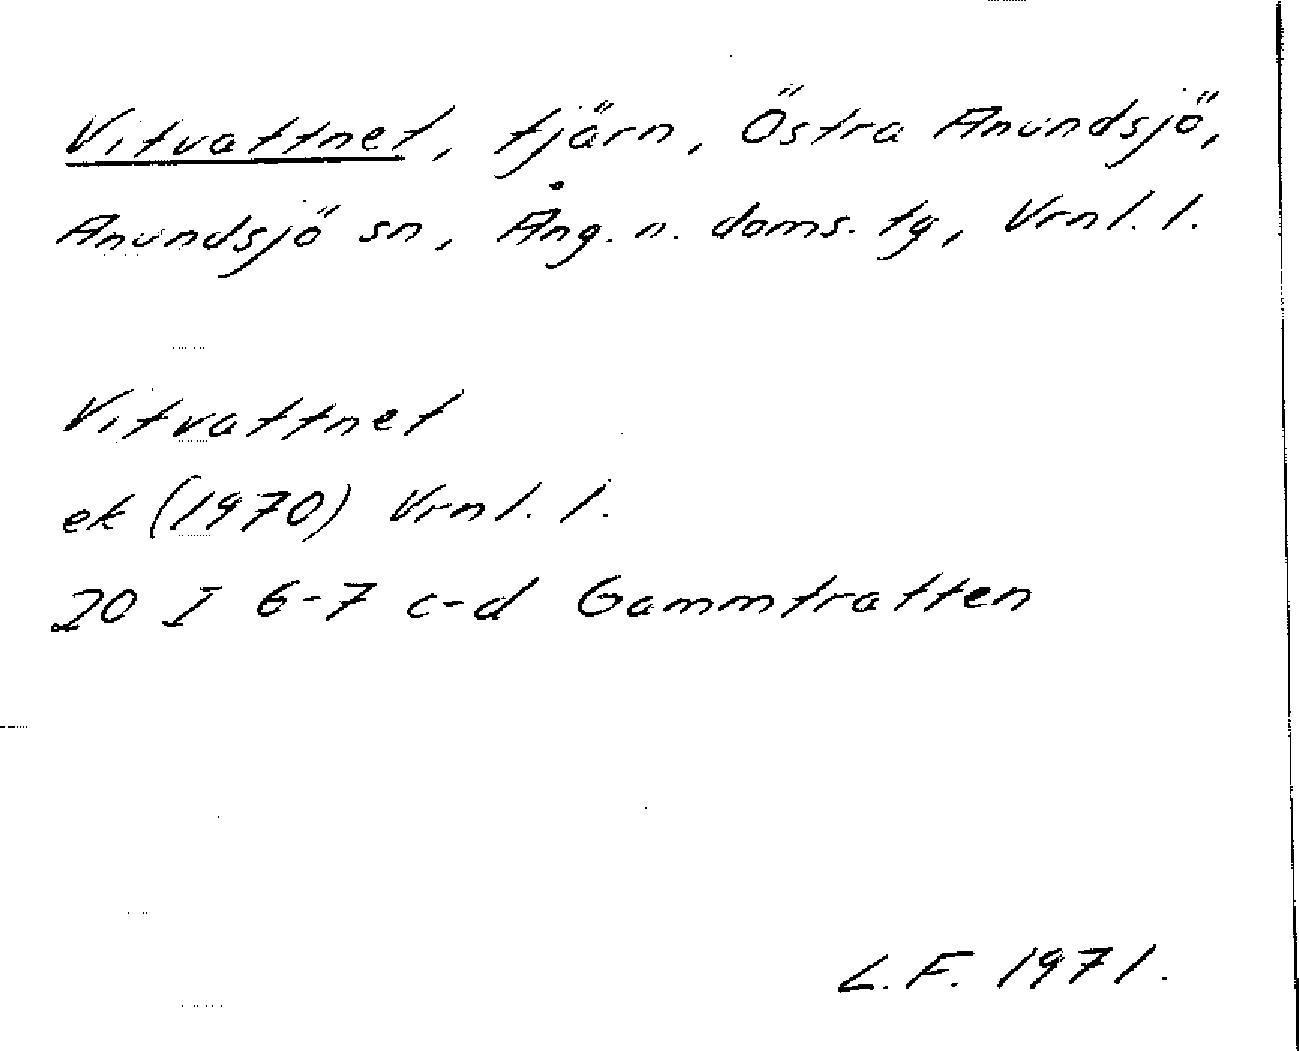 Vitvattnet, tjärn, Östra Anundsjö,
Anundsjö sn, Ång. n. doms. tg, Vrnl. l.
Vitvattnet
ek (1970) Vrnl. l.
20 I 6-7 c-d Gammtratten
L.F. 1971.